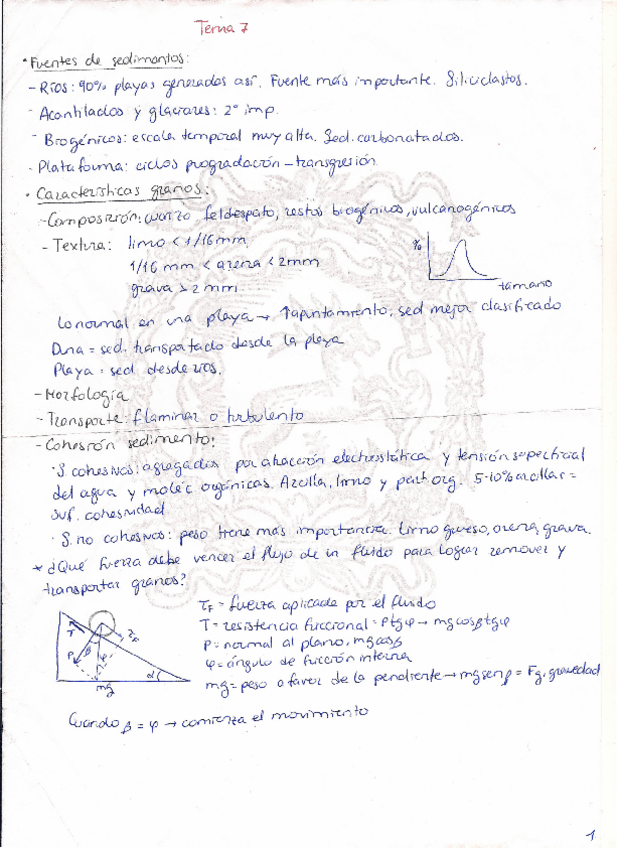 Tema 7
• Fuentes de sedimentos:
- Ríos: 90% playas generadas así. Fuente más importante. Siliciclastos.
- Acantilados y glaciares: 2º imp.
- Biogénicos: escala temporal muy alta. Sed. carbonatados.
- Plataforma: ciclos progradación - transgresión.
• Características granos:
- Composición: cuarzo feldespato, restos biogénicos, vulcanogénicos
- Textura: limo < 1/16 mm
%
1/16 mm < arena < 2mm
grava > 2 mm
tamaño
Lo normal en una playa → ↑apuntamiento, sed mejor clasificado
Duna = sed. transportado desde la playa
Playa = sed desde ríos.
- Morfología
- Transporte: f laminar o turbulento
- Cohesión sedimento:
· S cohesivos: agregados por atracción electrostática y tensión superficial
del agua y moléc orgánicas. Arcilla, limo y part org. 5-10% arcillas =
suf. cohesividad
· S. no cohesivos: peso tiene más importancia. Limo grueso, arena, grava.
* ¿Qué fuerza debe vencer el flujo de un fluido para lograr remover y
transportar granos?
τF = fuerza aplicada por el fluido
T = resistencia friccional = P tg φ → mg cos β tg φ
P = normal al plano, mg cos β
φ = ángulo de fricción interna
mg = peso a favor de la pendiente → mg sen β = Fg, gravedad
T
τF
P
β
φ
α
mg
Cuando β = φ → comienza el movimiento
1